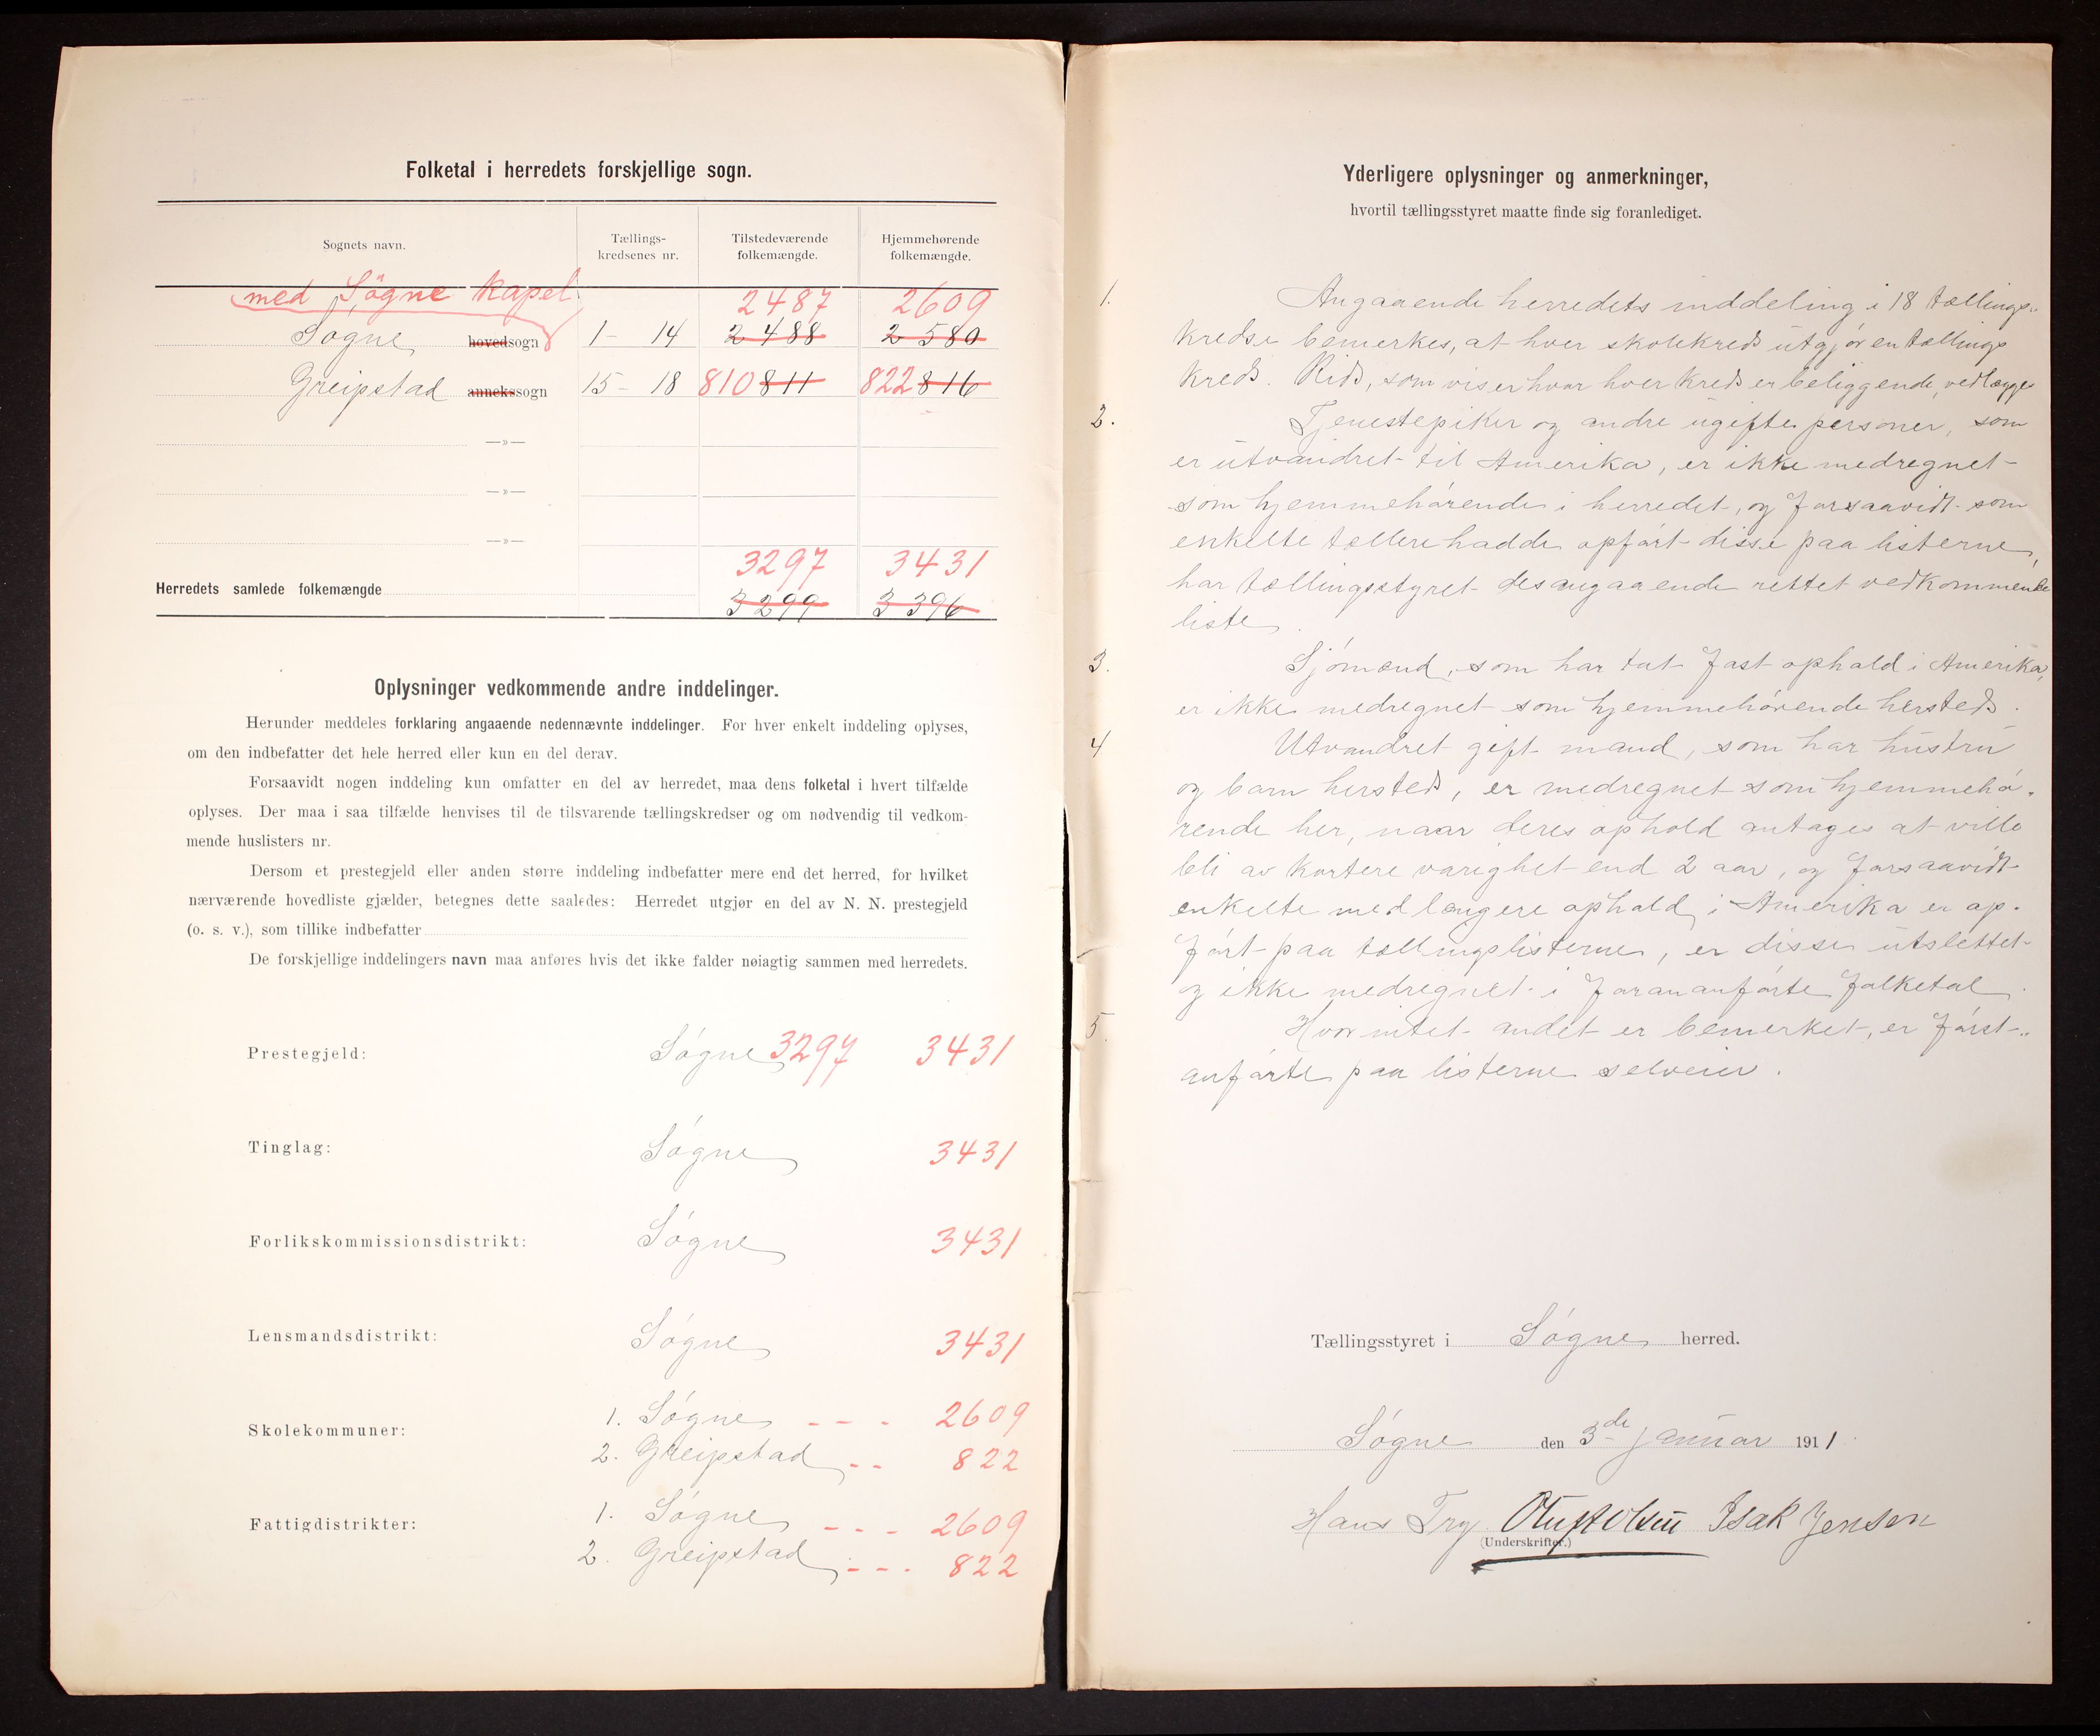 Folketal i herredets forskjellige sogn.
Sognets navn.
Tællings-
kredsenes nr.
Tilstedeværende
folkemængde.
Hjemmehørende
folkemængde.
med Sögne kapel 2487 2609
Søgne hovedsogn 1 - 14 2488 2580
Greipstad annekssogn 15 - 18 810 811 822 816
—»—
—»—
—»—
3297 3431
Herredets samlede folkemængde 3299 3396
Oplysninger vedkommende andre inddelinger.
Herunder meddeles forklaring angaaende nedennævnte inddelinger. For hver enkelt inddeling oplyses,
om den indbefatter det hele herred eller kun en del derav.
Forsaavidt nogen inddeling kun omfatter en del av herredet, maa dens folketal i hvert tilfælde
oplyses. Der maa i saa tilfælde henvises til de tilsvarende tællingskredser og om nødvendig til vedkom-
mende huslisters nr.
Dersom et prestegjeld eller anden større inddeling indbefatter mere end det herred, for hvilket
nærværende hovedliste gjælder, betegnes dette saaledes: Herredet utgjør en del av N. N. prestegjeld
(o. s. v.), som tillike indbefatter
De forskjellige inddelingers navn maa anføres hvis det ikke falder nøiagtig sammen med herredets.
Prestegjeld: Søgne 3297 3431
Tinglag: Søgne 3431
Forlikskommissionsdistrikt: Søgne 3431
Lensmandsdistrikt: Søgne 3431
Skolekommuner: 1. Søgne - - - 2609
2. Greipstad - - 822
Fattigdistrikter: 1. Søgne - - - 2609
2. Greipstad - - - 822
Yderligere oplysninger og anmerkninger,
hvortil tællingsstyret maatte finde sig foranlediget.
1. Angaaende herredets inddeling i 18 tællings-
kredse bemerkes, at hver skolekreds utgjør en tællings
kreds. Rids, som viser hvor hver kreds er beliggende, vedlægges
2. Tjenestepiker og andre ugifte personer, som
er utvandret til Amerika, er ikke medregnet
som hjemmehørende i herredet, og forsaavidt som
enkelte tællere hadde opført disse paa listerne,
har tællingsstyret desangaaende rettet vedkommende
liste.
3. Sjømænd, som har tat fast ophold i Amerika,
er ikke medregnet som hjemmehørende hersteds.
4 Utvandret gift mand, som har hustru
og barn hersteds, er medregnet som hjemmehø-
rende her, naar deres ophold antages at ville
bli av kortere varighet end 2 aar, og forsaavidt
enkelte med længere ophold i Amerika er op-
ført paa tællingslisterne, er disse utslettet
og ikke medregnet i forananførte folketal.
5. Hvor intet andet er bemerket, er først-
anførte paa listerne selveier.
Tællingsstyret i Søgne herred.
Søgne den 3de januar 1911.
Hans Try Oluf Olsen Isak Jensen
(Underskrifter.)